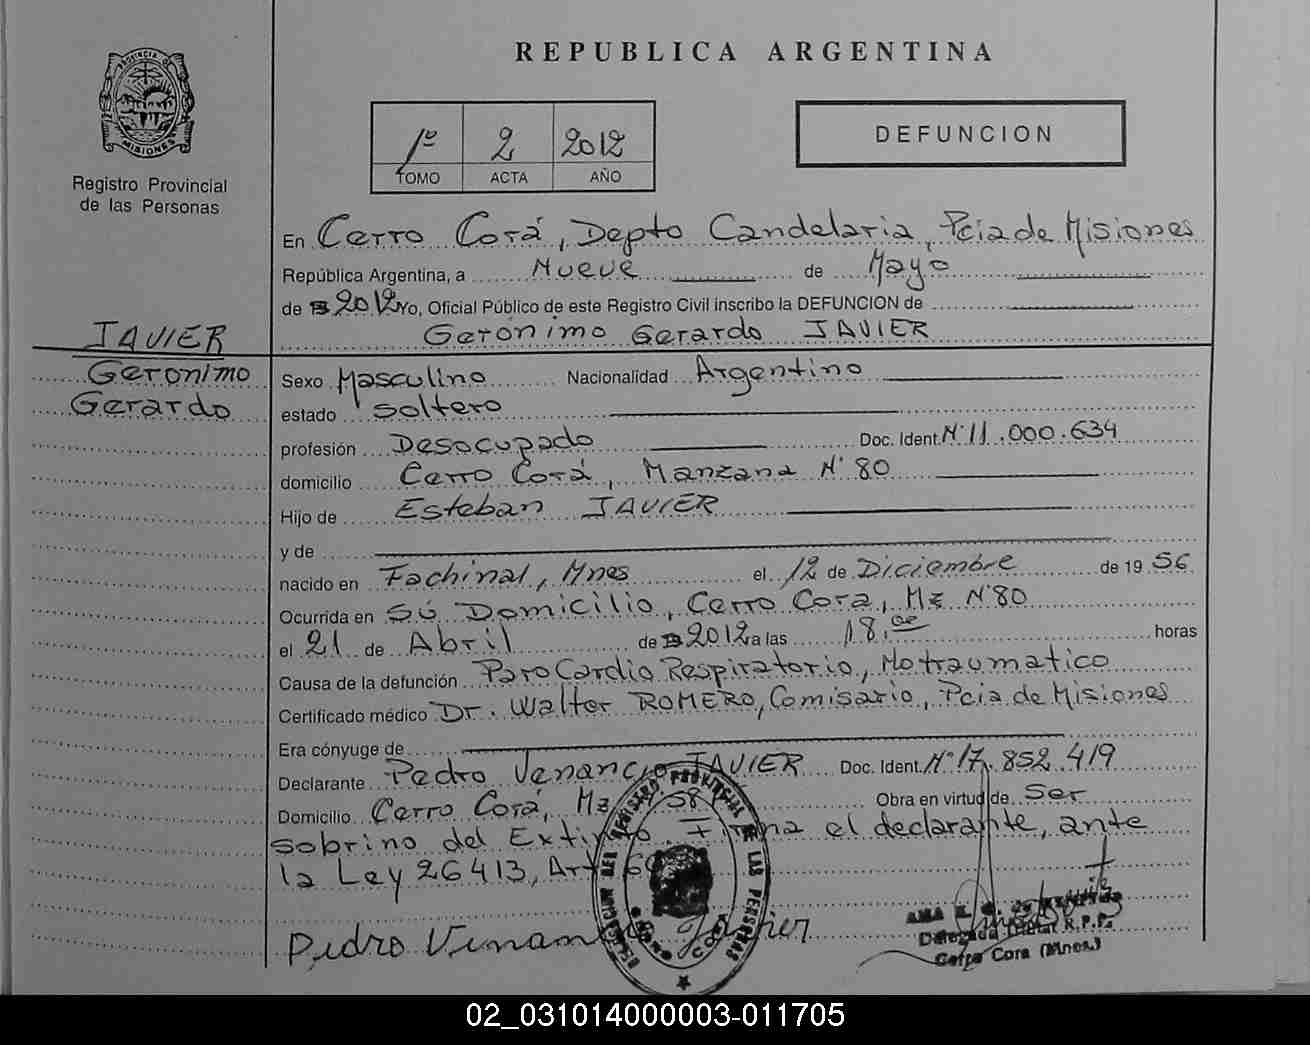 REPUBLICA ARGENTINA
PROVINCIA DE
MISIONES
Registro Provincial
de las Personas
1º 2 2012
TOMO ACTA AÑO
DEFUNCION
En Cerro Corá, Depto Candelaria, Pcia de Misiones
República Argentina, a Nueve de Mayo
de 2012 Yo, Oficial Público de este Registro Civil inscribo la DEFUNCION de
Gerónimo Gerardo JAVIER
JAVIER
Geronimo
Gerardo
Sexo Masculino Nacionalidad Argentino
estado Soltero
profesión Desocupado Doc. Ident. Nº 11.000.634
domicilio Cerro Corá, Manzana Nº 80
Hijo de Esteban JAVIER
y de
nacido en Fachinal, Mnes el 12 de Diciembre de 1956
Ocurrida en Sú Domicilio, Cerro Cora, Mz Nº 80
el 21 de Abril de 2012 a las 18,00 horas
Causa de la defunción Paro Cardio Respiratorio, No traumatico
Certificado médico Dr. Walter ROMERO, Comisario, Pcia de Misiones
Era cónyuge de
Declarante Pedro Venancio JAVIER Doc. Ident. Nº 17.852.419
Domicilio Cerro Corá, Mz 58 Obra en virtud de Ser
sobrino del Extinto. Firma el declarante, ante
la Ley 26413, Art
Pedro Venancio Javier
DELEGACION DEL REGISTRO PROVINCIAL DE LAS PERSONAS
CERRO CORA
Delegada Titular R.P.P.
Cerro Cora (Mnes.)
02_031014000003-011705